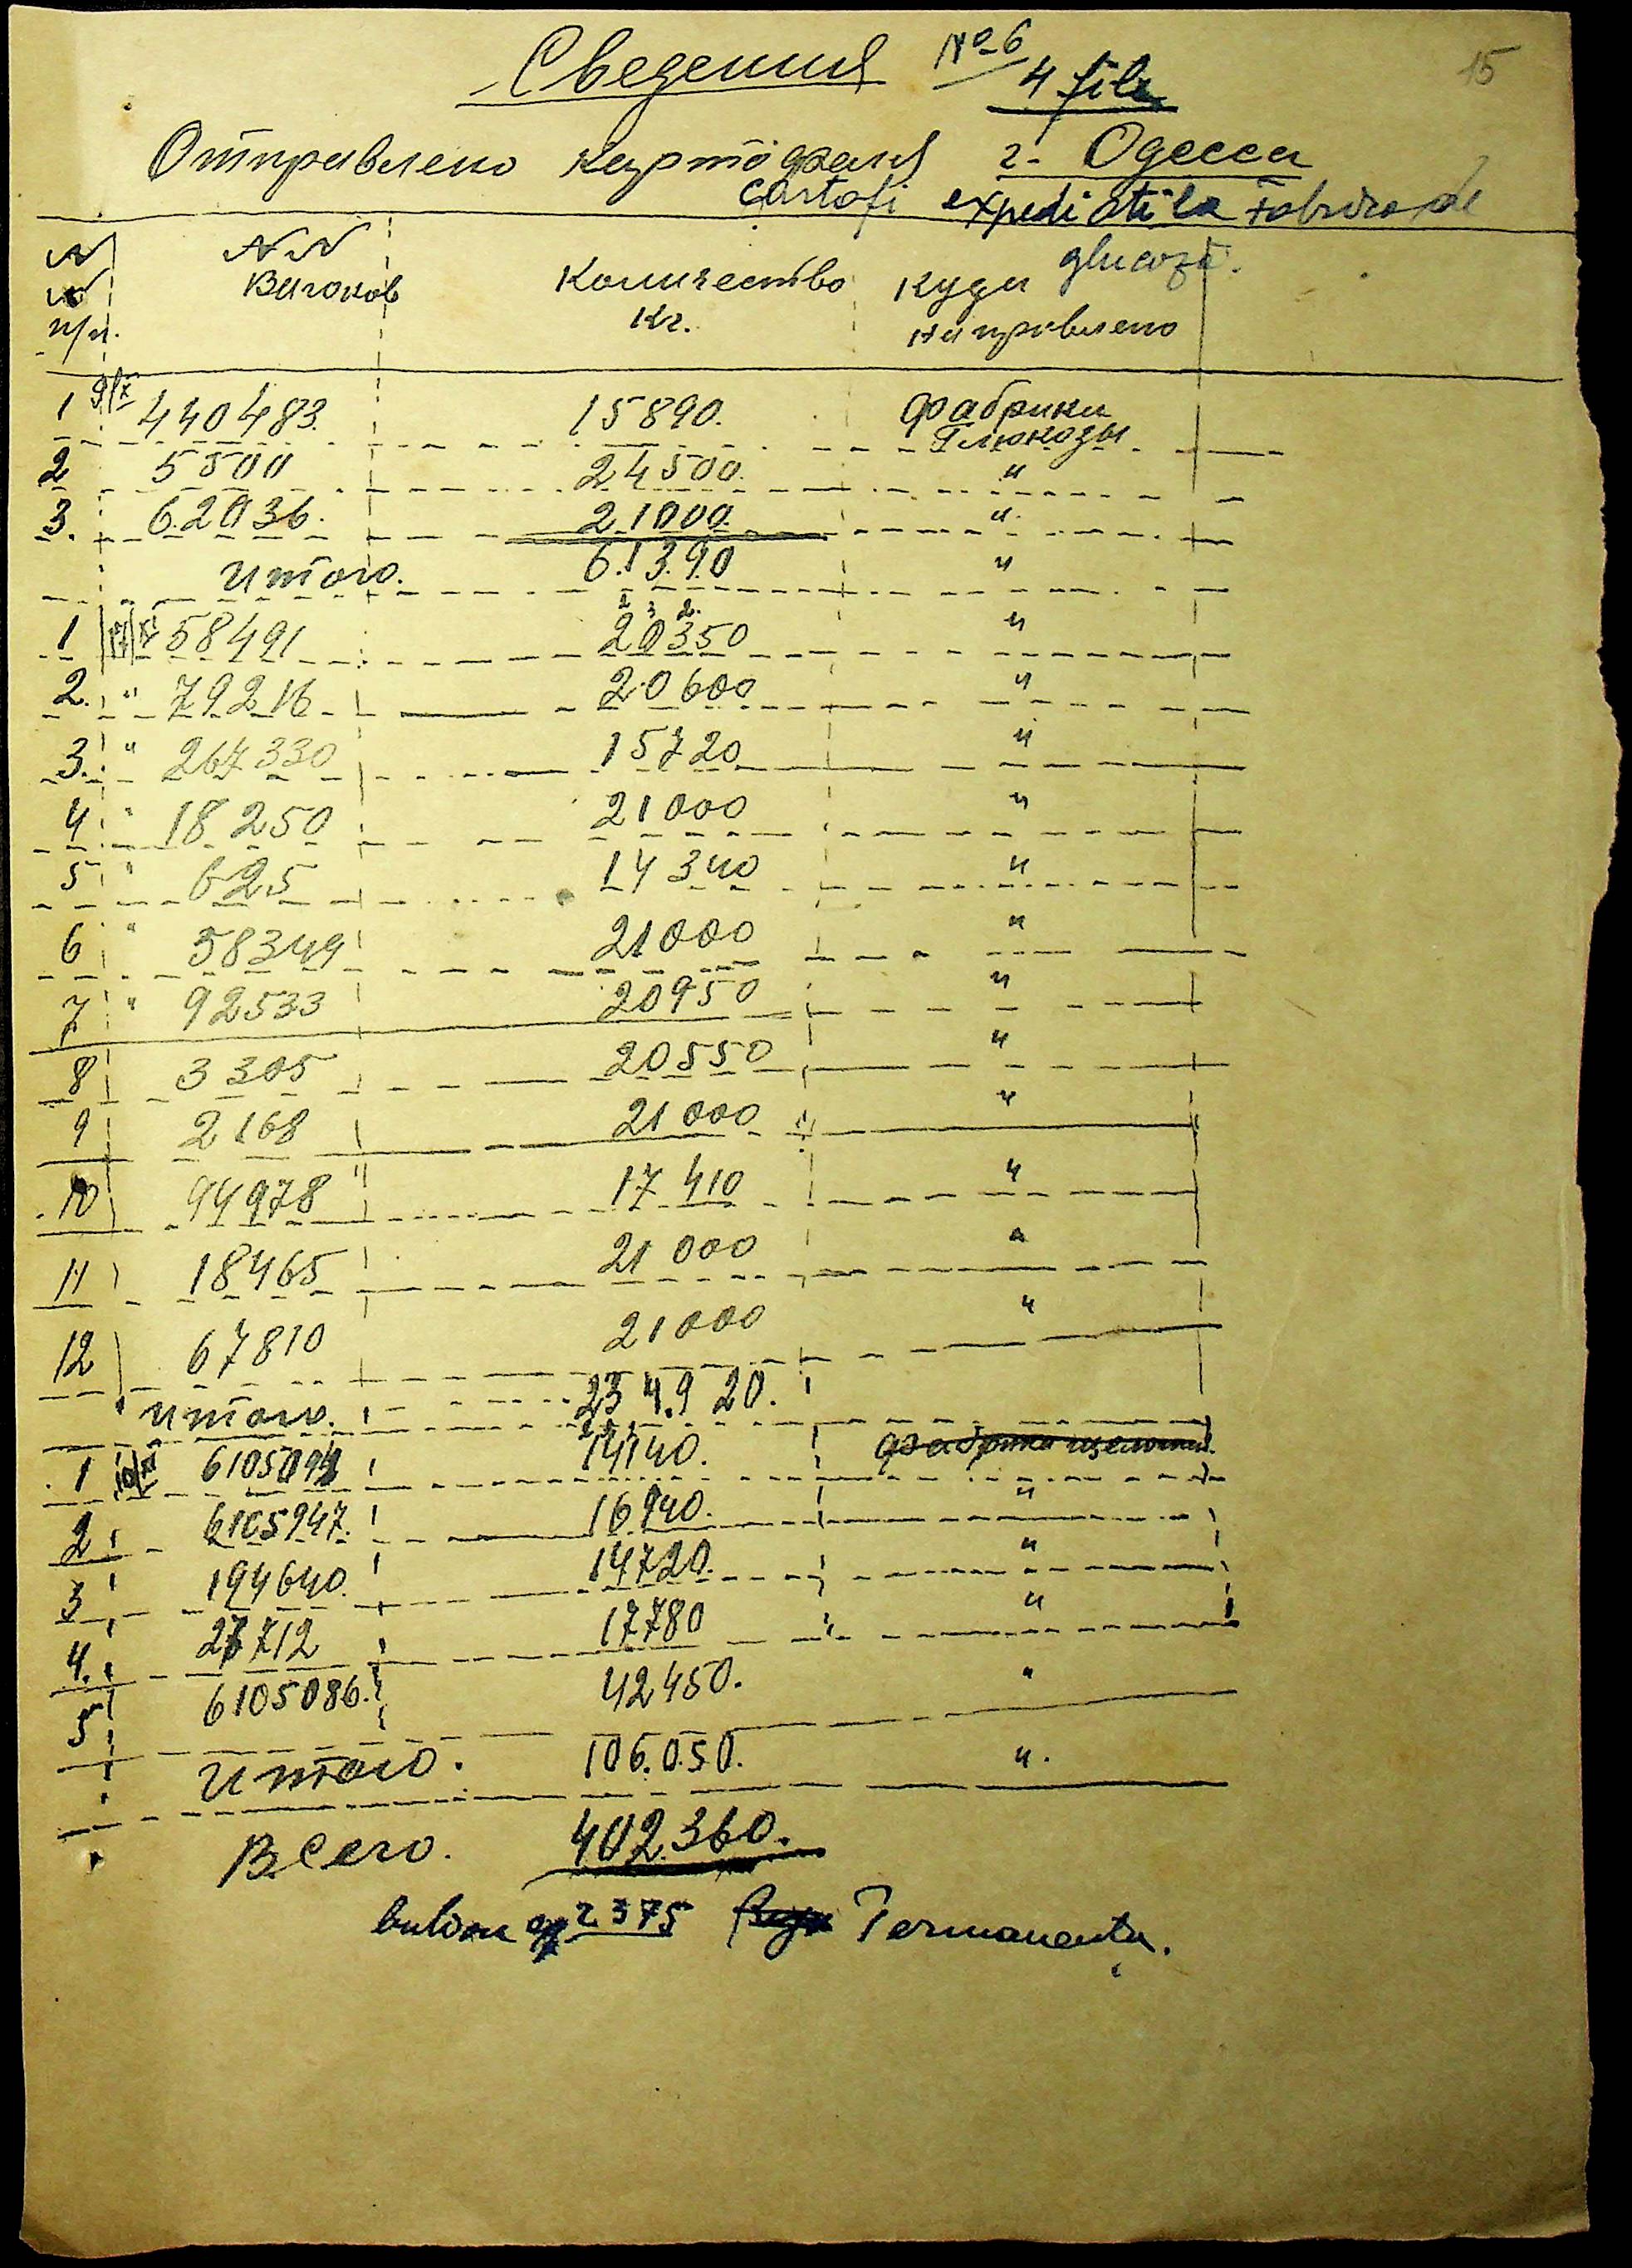 Сведения № 6
4 file
15
Отправлено картофеля г. Одесса
cartofi expediați la Fabrica de
glucoză.
N NN Количество Куда
N Вагонов Кг. направлено
п/п.
1 9/X 440483. 15890. Фабрики
Глюкозы
2 5500 24500. "
3. 62036. 21000. "
Итого. 61390 "
1 58491 20350 "
2. " 79216 20600 "
3. " 267330 15720 "
4 " 18250 21000 "
5 " 625 14340 "
6 " 58349 21000 "
7 " 92533 20950 "
8 3305 20550 "
9 2168 21000 "
10 94978 17410 "
11 18465 21000 "
12 67810 21000 "
Итого. 234.920.
1 14140. фабрика
2 6105947. 16940. "
3 194640. 14720. "
4. 17780 "
5 6105086. 42450. "
Итого. 106.050. ".
Всего. 402.360.
2375 Permanenta.